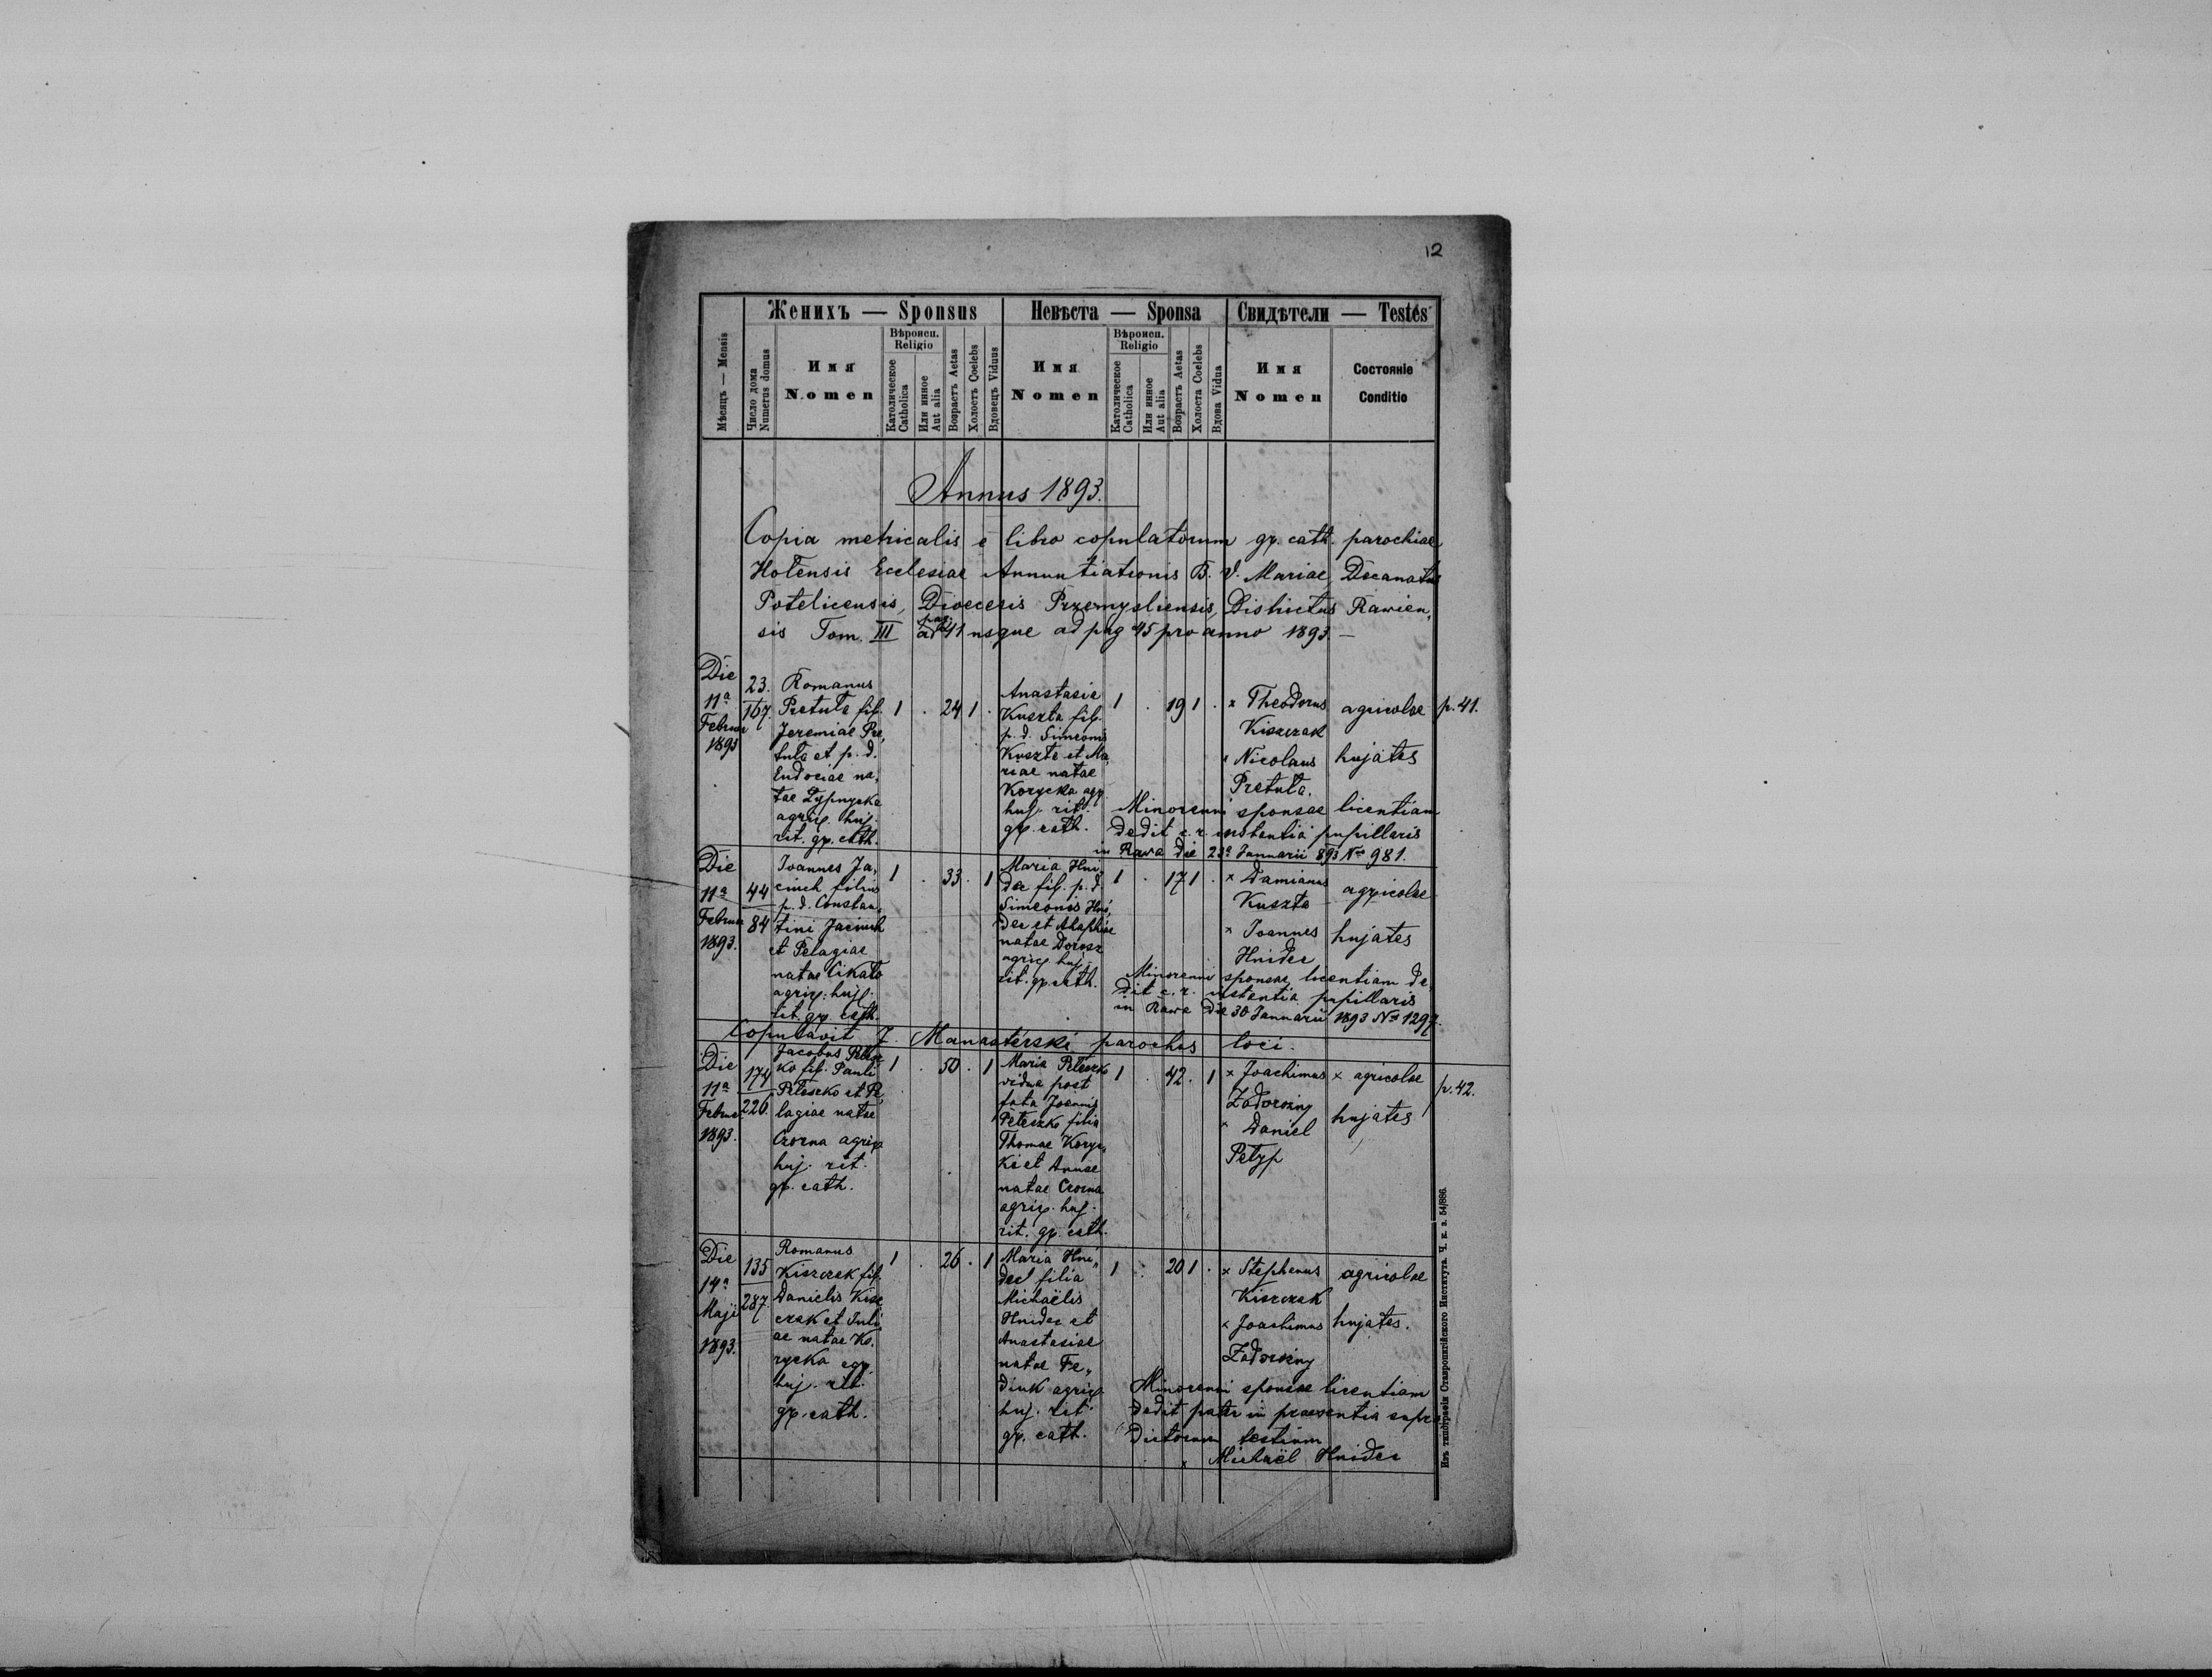 12
Женихъ — Sponsus
Невѣста — Sponsa
Свидѣтели — Testes
Мѣсяцъ — Mensis
Число дома
Numerus domus
Имя
Nomen
Вѣроисп.
Religio
Католическое
Catholica
Или инное
Aut alia
Возрастъ Aetas
Холостъ Coelebs
Вдовецъ Viduus
Имя
Nomen
Вѣроисп.
Religio
Католическое
Catholica
Или инное
Aut alia
Возрастъ Aetas
Холоста Coelebs
Вдова Vidua
Имя
Nomen
Состояніе
Conditio
Annus 1893.
Copia metricalis e libro copulatorum gr. cath. parochiae
Hotensis Ecclesiae Annuntiationis B. V. Mariae, Decanatus
Potelicensis, Dioecesis Przemysliensis, Districtus Rawien„
sis Tom. III ad pag 41 usque ad pag 45 pro anno 1893. —
Die
11ª
Februar
1893
23.
167.
Romanus
Pretula fil.
Jeremiae Pre„
tula et p. d.
Eudociae na„
tae
agric. huj.
rit. gr. cath.
1 . 24 1 .
Anastasia
Kuszta fil.
p. d. Simeonis
Kuszta et Ma„
riae natae
Korycka agr.
huj. rit.
gr. cath.
1 . 19 1 .
x Theodorus
Kiszczak
x Nicolaus
Pretula.
agricolae
hujates
p. 41.
Minorenni sponsae licentiam
dedit c. r. instantia pupillaris
in Rawa die 23ª Januarii 893 No 981.
Die
11ª
Februar
1893.
44
84
Joannes Ja„
ciuch filius
p. d. Constan„
tini Jaciuch
et Pelagiae
natae Cikalo
agric. huj.
rit. gr. cath.
1 . 33 . 1
Maria Hni„
dec fil. p. d.
Simeonis Hni„
dec et Ahaphiae
natae Dorosz
agric. huj.
rit. gr. cath.
1 . 17 1 .
x Damianus
Kuszta
x Joannes
Hnidec
agricolae
hujates
Minorenni sponsae licentiam de„
dit c. r. instantia pupillaris
in Rawa die 30 Januarii 1893 No 1297.
Copulavit J. Manasterski parochus loci.
Die
11ª
Februar
1893.
174
226.
Jacobus Petesz
ko fil. Pauli
Peteszko et Pe„
lagiae natae
Czorna agric.
huj. rit.
gr. cath.
1 . 50 . 1
Maria Peteszko
vidua post
fata Joannis
Peteszko filia
Thomae Koryc„
ki et Annae
natae Czorna
agric. huj.
rit. gr. cath.
1 . 42 . 1
x Joachimus
Zadorożny
x Daniel
Petyp
x agricolae
hujates
p. 42.
Die
14ª
Maji
1893.
135
287.
Romanus
Kiszczak fil.
Danielis Kisz
czak et Juli„
ae natae Ko„
rycka agr.
huj. rit.
gr. cath.
1 . 26 . 1
Maria Hni„
dec filia
Michaëlis
Hnidec et
Anastasiae
natae Fe„
diuk agric.
huj. rit.
gr. cath.
1 . 20 1 .
x Stephanus
Kiszczak
x Joachimus
Zadorożny
agricolae
hujates.
Minorenni sponsae licentiam
dedit pater in praesentia supra
dictorum testium
x Michaël Hnidec
Изъ типографіи Ставропигійского Института. Ч. к. з. 54/886.